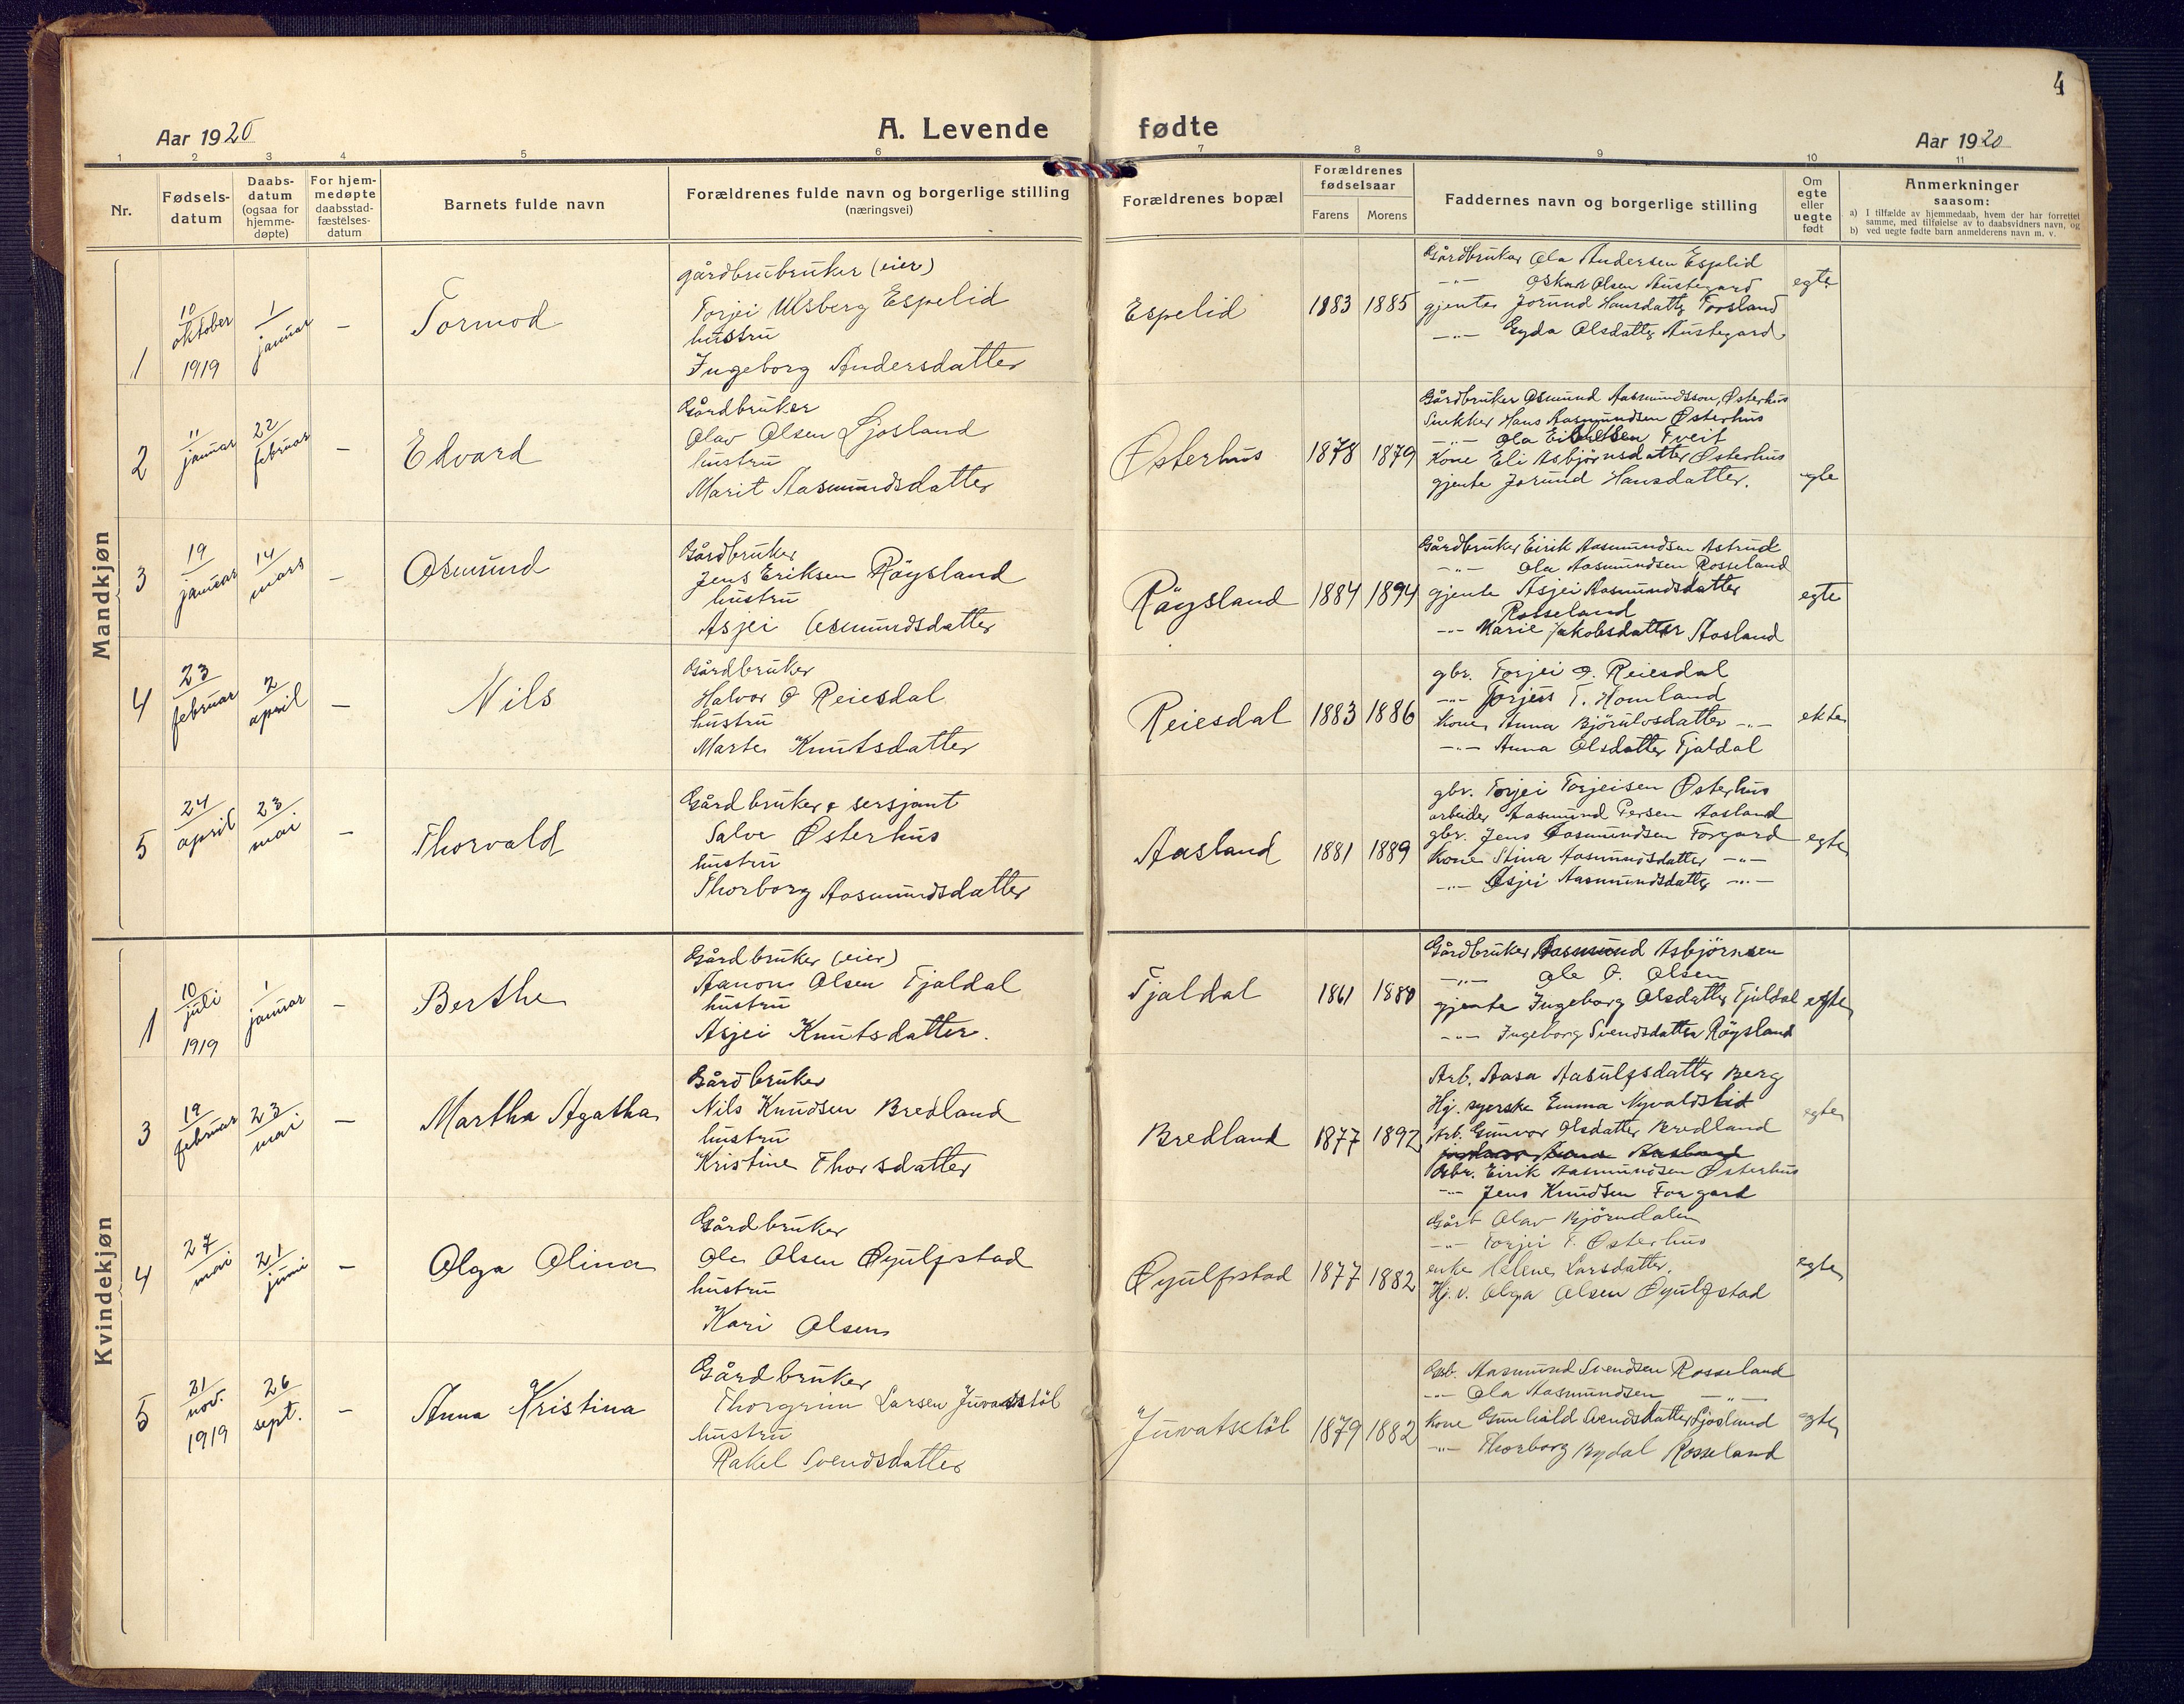 4
Aar 1920
A. Levende fødte
Aar 1920
1 2 3 4 5 6 7 8 9 10 11
Nr.
Fødsels-
datum
Daabs-
datum
(ogsaa for
hjemme-
døpte)
For hjem-
medøpte
daabsstad-
fæstelses-
datum
Barnets fulde navn
Forældrenes fulde navn og borgerlige stilling
(næringsvei)
Forældrenes bopæl
Forældrenes
fødselsaar
Farens
Morens
Faddernes navn og borgerlige stilling
Om
egte
eller
uegte
født
Anmerkninger
saasom:
a) I tilfælde av hjemmedaab, hvem der har forrettet
samme, med tilføielse av to daabsvidners navn, og
b) ved uegte fødte barn anmelderens navn m. v.
Mandkjøn
1
10
oktober
1919
1
januar
—
Tormod
gårdbrubruker (eier)
Torjei Ulsberg Espelid
hustru
Ingeborg Andersdatter
Espelid
1883
1885
Gårdbruker Ola Andersen Espelid
—"— Oskar Olsen Austegard
gjente Jorund Hansdatter Fossland
—"— Gyda Olsdatter Austegard
egte
2
11
januar
22
februar
—
Edvard
Gårdbruker
Olav Olsen Ljosland
hustru
Marit Aasmundsdatter
Østerhus
1878
1879
Gårdbruker Osmund Aasmundsson, Østerhus
Snikker Hans Aasmundsen Østerhus
—"— Ola Tveit
Kone Eli Asbjørnsdatter Østerhus
gjente Jorund Hansdatter.
egte
3
19
januar
14
mars
—
Osmund
Gårdbruker
Jens Eriksen Röysland
hustru
Asjei Osmundsdatter
Röysland
1884
1894
Gårdbruker Eirik Aasmundsen Astrud
—"— Ola Aasmundsen Rosseland
gjente Asjei Aasmundsdatter
Rosseland
—"— Marie Jakobsdatter Aasland
egte
4
23
februar
2
april
—
Nils
Gårdbruker
Halvor O Reiesdal
hustru
Marte Knutsdatter
Reiesdal
1883
1886
gbr. Torjei O. Reiesdal
—"— Torjess T. Homland
Kone Anna Björulvsdatter —"—
—"— Anna Olsdatter Tjaldal
ekte
5
24
april
23
mai
—
Thorvald
Gårdbruker & sersjant
Salve Østerhus
hustru
Thorborg Aasmundsdatter
Aasland
1881
1889
gbr. Torjei Torjeisen Østerhus
arbeider Aasmund Persen Aasland
gbr. Jens Aasmundsen Forgard
Kone Stina Aasmundsdatter —"—
—"— Asjei Aasmundsdatter —"—
egte
Kvindekjøn
1
10
juli
1919
1
januar
—
Berthe
Gårdbruker (eier)
Aanon Olsen Tjaldal
hustru
Asjei Knutsdatter.
Tjaldal
1861
1880
Gårdbruker Aasmund Asbjörnsen
—"— Ole O. Olsen
gjente Ingeborg Olsdatter Tjaldal
—"— Ingeborg Svendsdatter Röysland
egte
3
19
februar
23
mai
—
Martha Agatha
Gårdbruker
Nils Knudsen Bredland
hustru
Kristine Thorsdatter
Bredland
1877
1892
Arb. Aasa Aasulfsdatter Berg
Hj. syerske Emma Nyvaldslid
Arb. Gunvor Olsdatter Bredland
Gbr. Eirik Aasmundsen Østerhus
—"— Jens Knudsen Forgard
egte
4
27
mai
21
juni
—
Olga Olina
Gårdbruker
Ole Olsen Øyulfstad
hustru
Kari Olsen
Øyulfstad
1877
1882
Gårb Olav Björndalen
—"— Torjei T. Østerhus
enke Helene Larsdatter.
Hj. v. Olga Olsen Øyulfstad
egte
5
21
nov.
1919
26
sept.
—
Anna Kristina
Gårdbruker
Thorgrim Larsen Juvatsstöl
hustru
Rakel Svendsdatter
Juvatsstöl
1879
1882
Gbr. Aasmund Svendsen Rosseland
—"— Ola Aasmundsen —"—
Kone Gunhild Svendsdatter Ljosland
—"— Thorborg Bydal Rosseland
egte